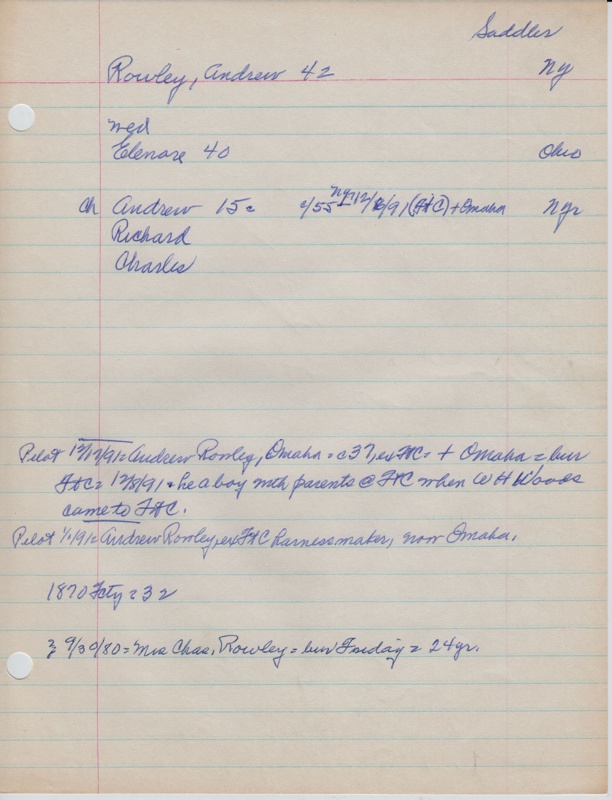 Saddler
Rowley, Andrew 42 NY
wed
Elenore 40 Ohio
ch Andrew 15 c c/55 NY 12/8/91 (FtC) + Omaha NYr
Richard
Charles
Pilot 12/12/91 = Andrew Rowley, Omaha = c37, ex FtC = + Omaha = bur
FtC = 12/8/91 + he a boy with parents @ FtC when W H Woods
came to FtC.
Pilot 1/1/91 = Andrew Rowley, ex FtC harnessmaker, now Omaha.
1870 Fcty = 32
9/30/80 = Mrs Chas. Rowley = bur Friday = 24 yr.